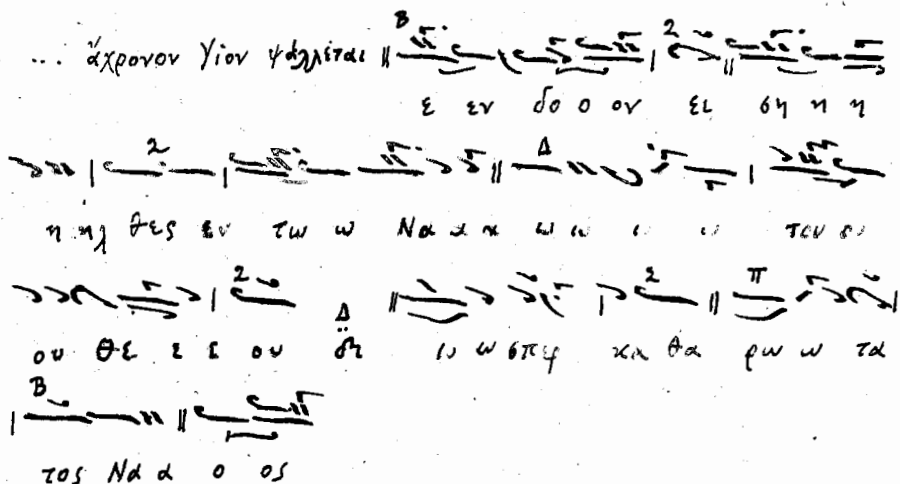 ... ἄχρονον Υἱὸν ψάλλεται ε εν δο ο ον ει ση η η
η ηλ θες εν τω ω Να α α ω ω ω ω του ου
ου Θε ε ε ου δι ω ω σπερ κα θα ρω ω τα
τος Να α ο ος